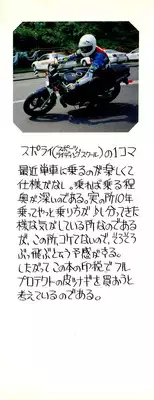 スポライ(スポーツライディングスクール)の1コマ
最近単車に乗るのが楽しくて
仕様がなし。乗れば乗る程
奥が深いのである。実の所10年
乗ってやっと乗り方が少し分ってきた
様な気がしている所なのである
が、この所、コケてないので、そろそろ
ぶっ飛ぶという予感がする。
したがってこの本の印税でフル
プロテクトの皮ツナギを買おうと
考えているのである。